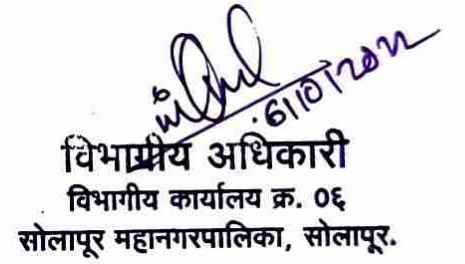 6/10/2022
विभागीय अधिकारी
विभागीय कार्यालय क्र. ०६
सोलापूर महानगरपालिका, सोलापूर.